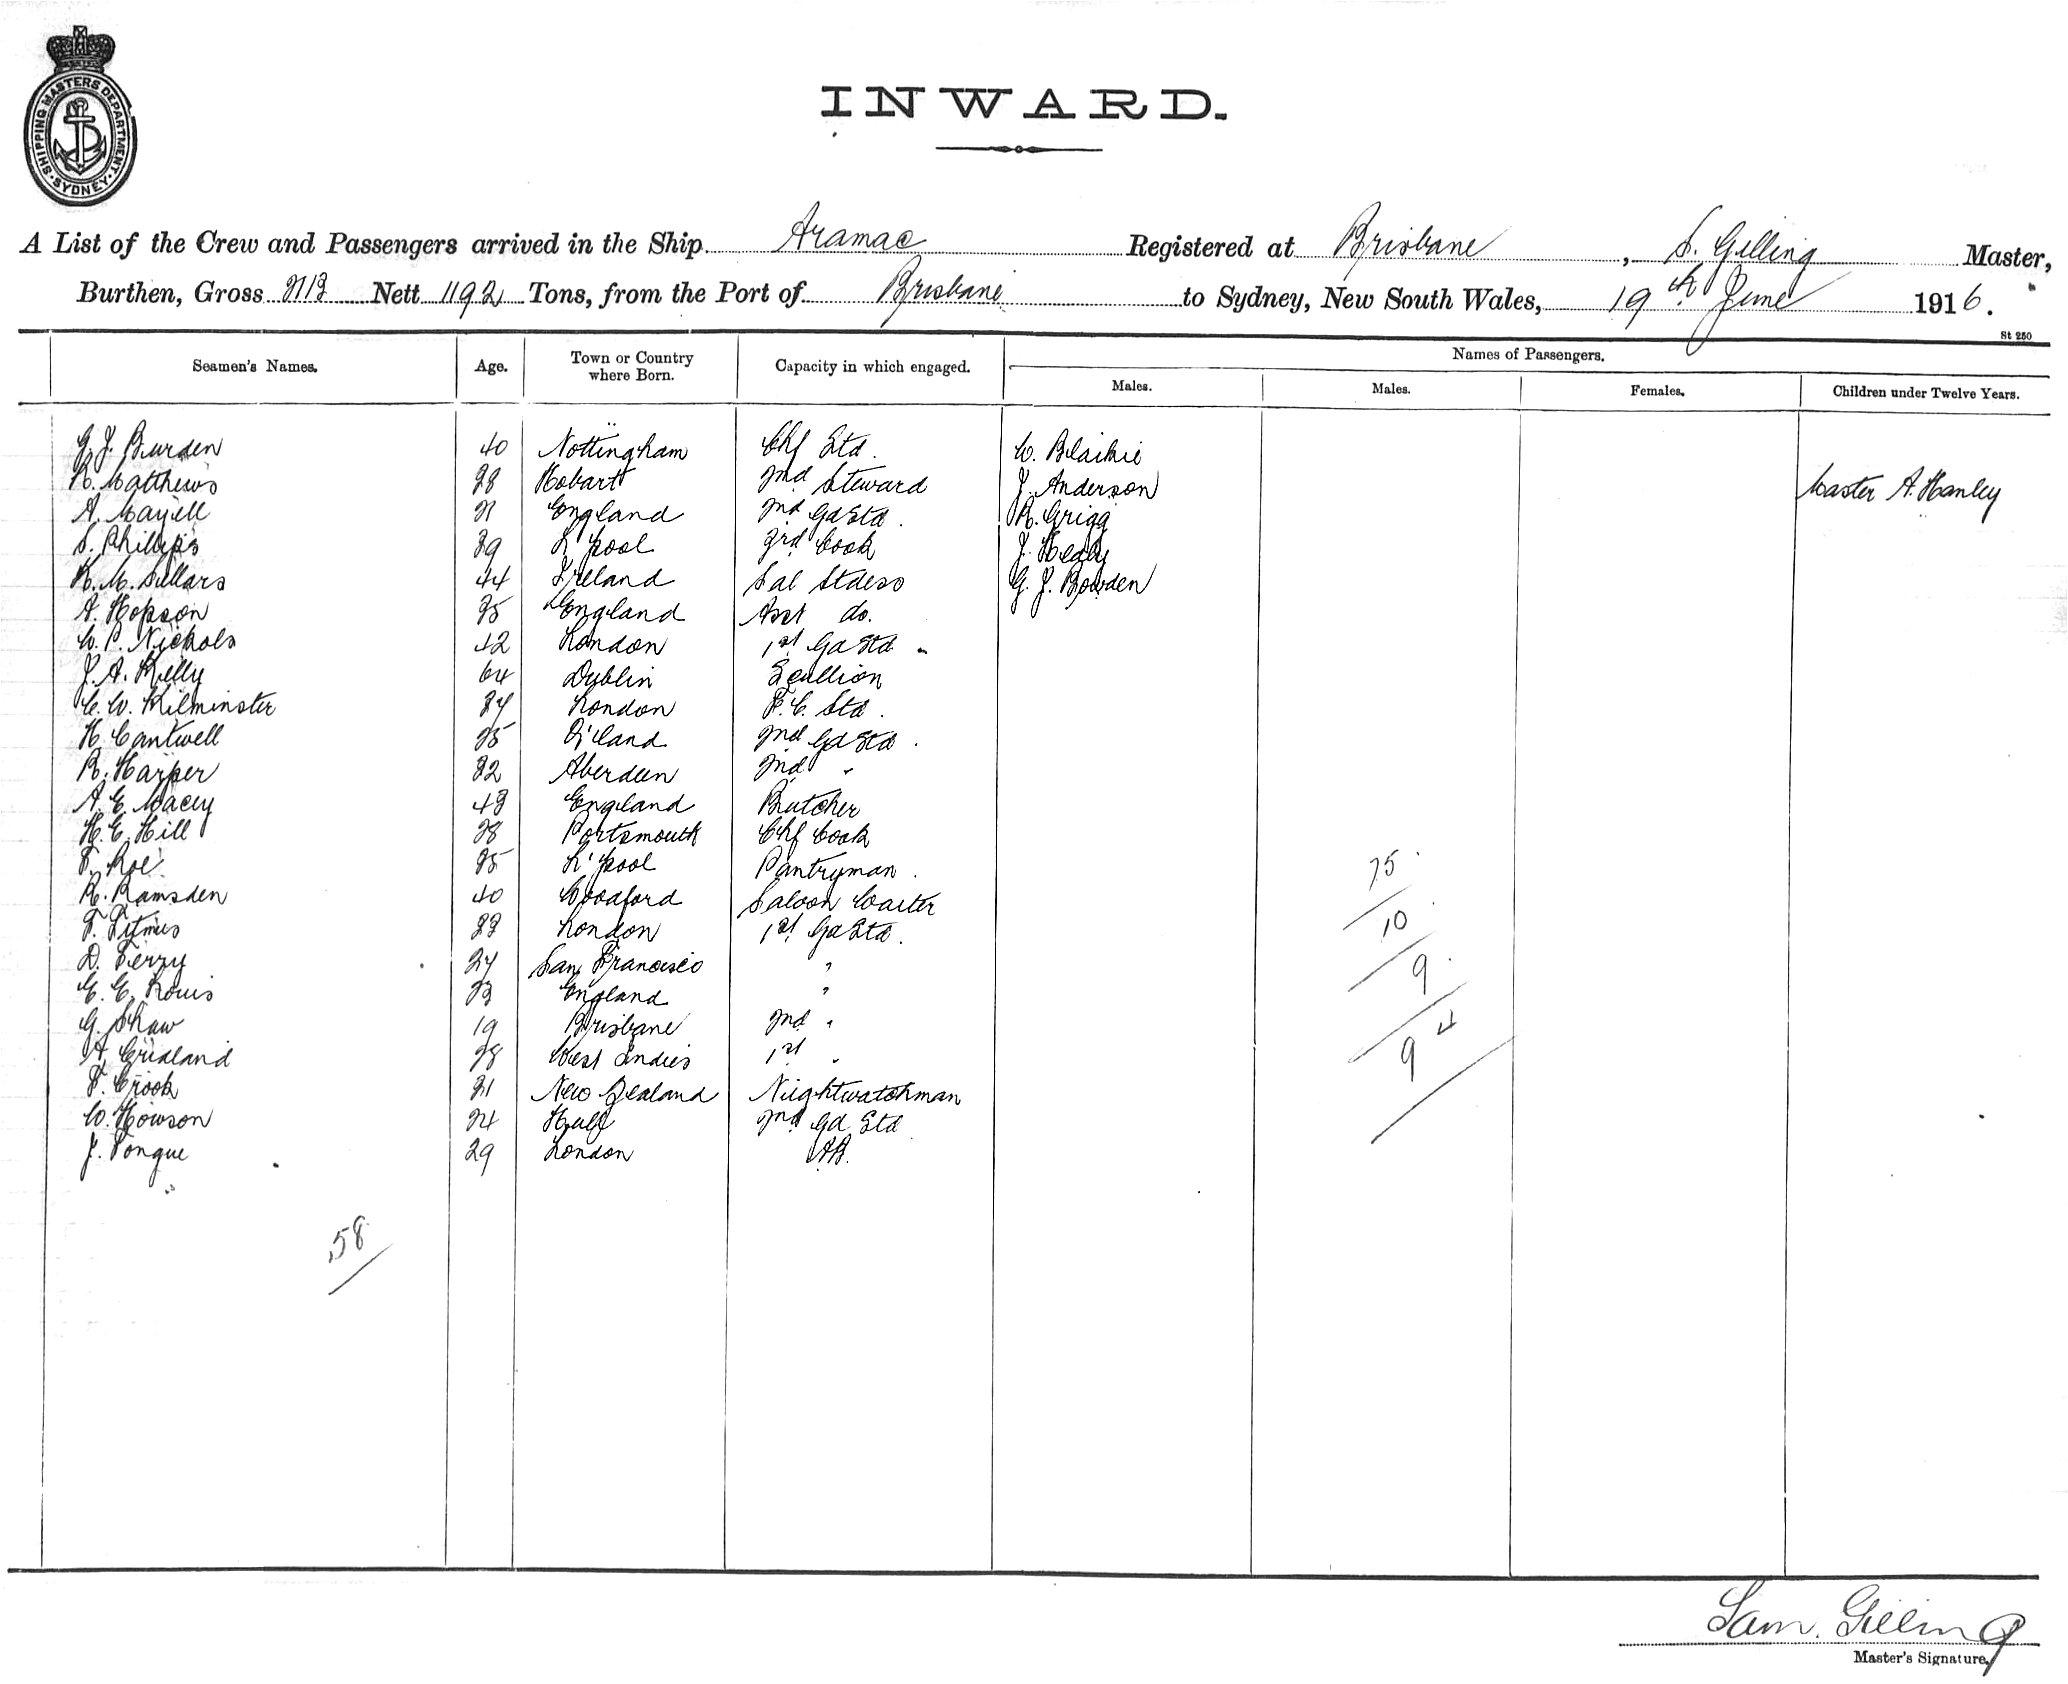 SHIPPING MASTERS DEPARTMENT · SYDNEY ·
INWARD.
A List of the Crew and Passengers arrived in the Ship Aramac Registered at Brisbane, S. Gilling Master,
Burthen, Gross 2113 Nett 1192 Tons, from the Port of Brisbane to Sydney, New South Wales, 19th June 1916.
St 250
Seamen's Names. Age. Town or Country where Born. Capacity in which engaged. Names of Passengers.
Males. Males. Females. Children under Twelve Years.
G. J. Burden 40 Nottingham Chf Std. W. Blaikie
R. Matthews 38 Hobart 2nd Steward J. Anderson Master A. Hanley
A. Mayell 21 England 2nd Gd Std. R. Grigg
S. Phillips 39 L'pool 3rd Cook J. Healy
R. M. Sullars 44 Ireland Sal Stdess G. J. Bowden
A. Hopson 35 England Asst do.
W. P. Nichols 42 London 1st Gd Std "
J. A. Kelly 64 Dublin Scullion
C. W. Kilminster 37 London F. C. Std.
H. Cantwell 25 Q'land 2nd Gd Std.
R. Harper 32 Aberdeen 2nd "
A. E. Macey 43 England Butcher
H. E. Hill 38 Portsmouth Chf Cook
F. Roe 35 L'pool Pantryman.
R. Ramsden 40 Woodford Saloon Waiter
F. Titmus 33 London 1st Gd Std.
D. Terry 27 San Francisco "
E. E. Louis 23 England "
G. Shaw 19 Brisbane 2nd "
A. 28 West Indies 1st "
F. Crook 31 New Zealand Nightwatchman
W. Howson 24 Hull 2nd Gd Std
J. Tongue 29 London AB.
75
10
9
4
9
58
Sam. Gilling
Master's Signature.